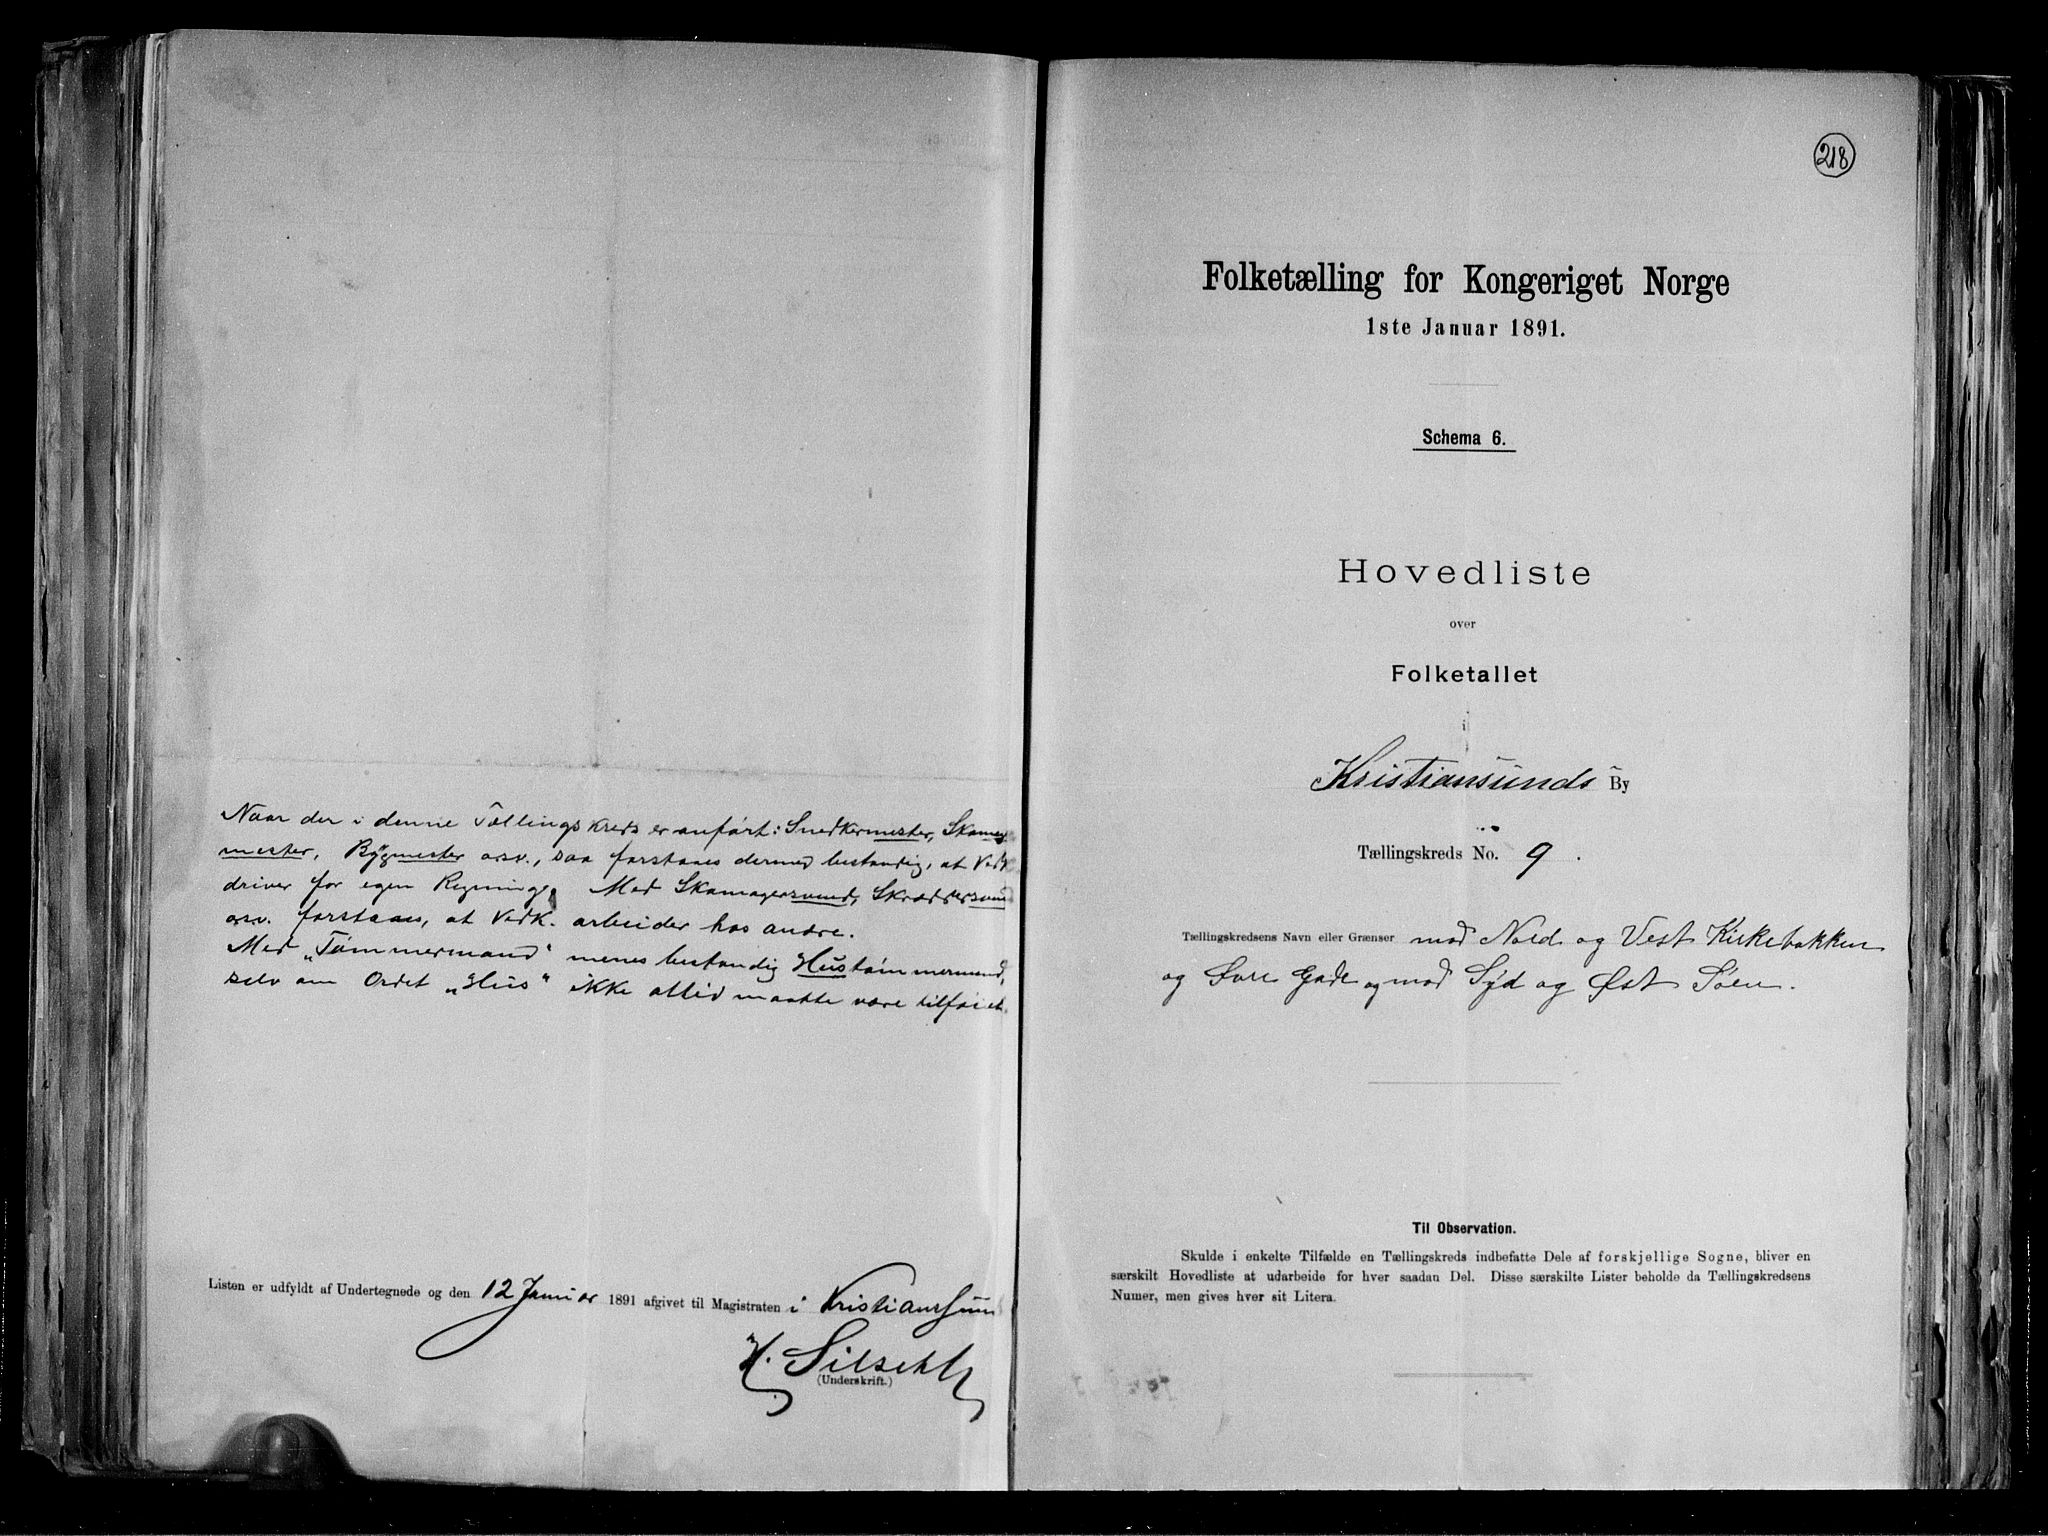 Naar der i denne Tællingskreds er anført: Snedkermester, Skomager
mester, Bygmester osv., saa forstaaes dermed bestandig, at Vedk.
driver for egen Regning. Med Skomagersvend, Skræddersvend
osv. forstaaes, at Vedk. arbeider hos andre.
Med „Tømmermand" menes bestandig Hustømmermand,
selv om Ordet „Hus" ikke altid maatte være tilføiet.
Listen er udfyldt af Undertegnede og den 12 Januar 1891 afgivet til Magistraten i Kristianssund
H.
(Underskrift.)
218
Folketælling for Kongeriget Norge
1ste Januar 1891.
Schema 6.
Hovedliste
over
Folketallet
i
Kristiansunds By
Tællingskreds No. 9.
Tællingskredsens Navn eller Grænser mod Nord og Vest Kirkebakken
og Øvre Gade og mod Syd og Øst Søen.
Til Observation.
Skulde i enkelte Tilfælde en Tællingskreds indbefatte Dele af forskjellige Sogne, bliver en
særskilt Hovedliste at udarbeide for hver saadan Del. Disse særskilte Lister beholde da Tællingskredsens
Numer, men gives hver sit Litera.